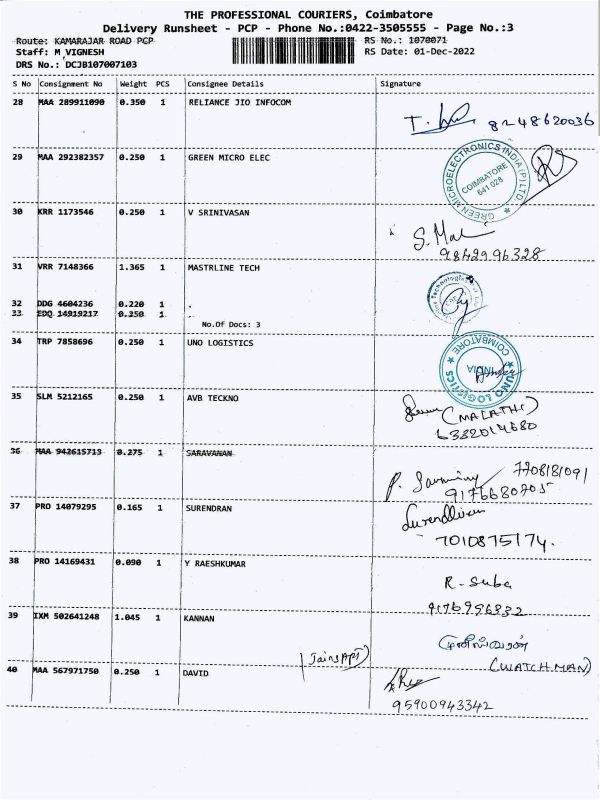 THE PROFESSIONAL COURIERS, Coimbatore
Delivery Runsheet - PCP - Phone No.:0422-3505555 - Page No.:3
Route: KAMARAJAR ROAD PCP RS No.: 1070071
Staff: M VIGNESH RS Date: 01-Dec-2022
DRS No.: DCJB107007103
S No Consignment No Weight PCS Consignee Details Signature
28 MAA 289911090 0.350 1 RELIANCE JIO INFOCOM
8248620036
29 MAA 292382357 0.250 1 GREEN MICRO ELEC
GREEN MICROELECTRONICS INDIA (P) LTD.
COIMBATORE
641 028
30 KRR 1173546 0.250 1 V SRINIVASAN
9842996328
31 VRR 7148366 1.365 1 MASTRLINE TECH
32 DDG 4604236 0.220 1 .
33 EDQ 14919217 0.250 1 .
No.Of Docs: 3
34 TRP 7858696 0.250 1 UNO LOGISTICS
UNO LOGISTICS COIMBATORE
INDIA
35 SLM 5212165 0.250 1 AVB TECKNO
(MALATHI)
6382014680
36 MAA 942615713 0.275 1 SARAVANAN
7708181091
9176680705
37 PRO 14079295 0.165 1 SURENDRAN
7010875174.
38 PRO 14169431 0.090 1 Y RAESHKUMAR
R. Suba
9176996832
39 IXM 502641248 1.045 1 KANNAN
முனீஸ்வரன்
(WATCHMAN)
40 MAA 567971750 0.250 1 DAVID
95900943342